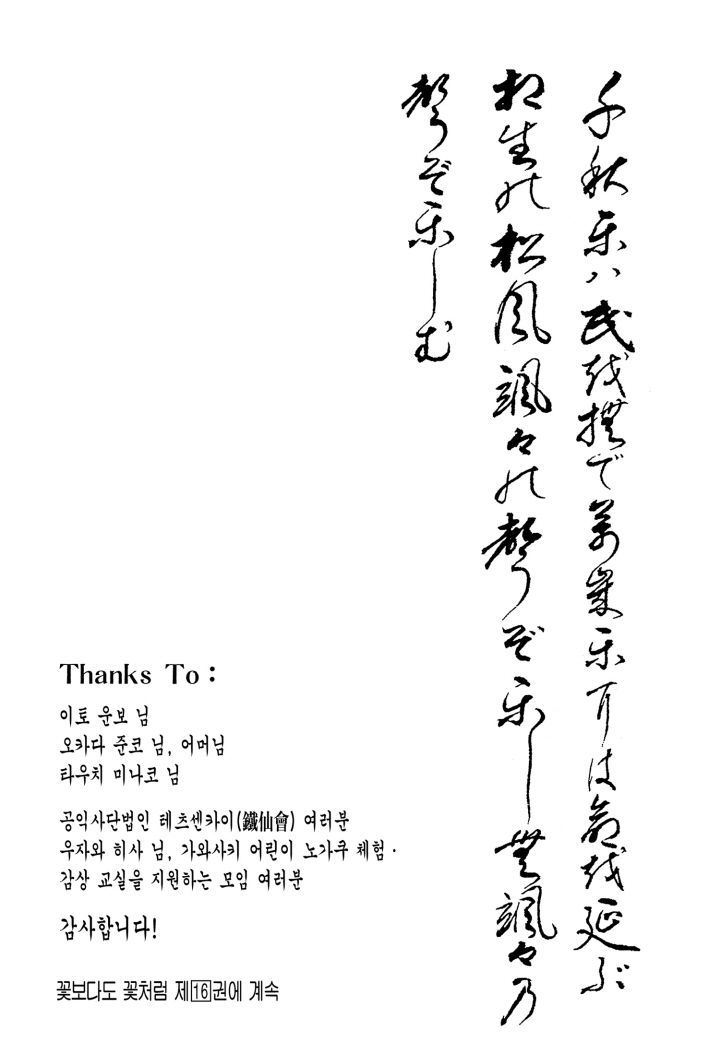 千秋楽ハ民を撫で萬歳楽には命を延ぶ
相生の松風颯々の聲ぞ楽しむ颯々の
聲ぞ楽しむ
Thanks To :
이토 운보 님
오카다 준코 님, 어머님
타우치 미나코 님
공익사단법인 테츠센카이(鐵仙會) 여러분
우자와 히사 님, 가와사키 어린이 노가쿠 체험·
감상 교실을 지원하는 모임 여러분
감사합니다!
꽃보다도 꽃처럼 제16권에 계속